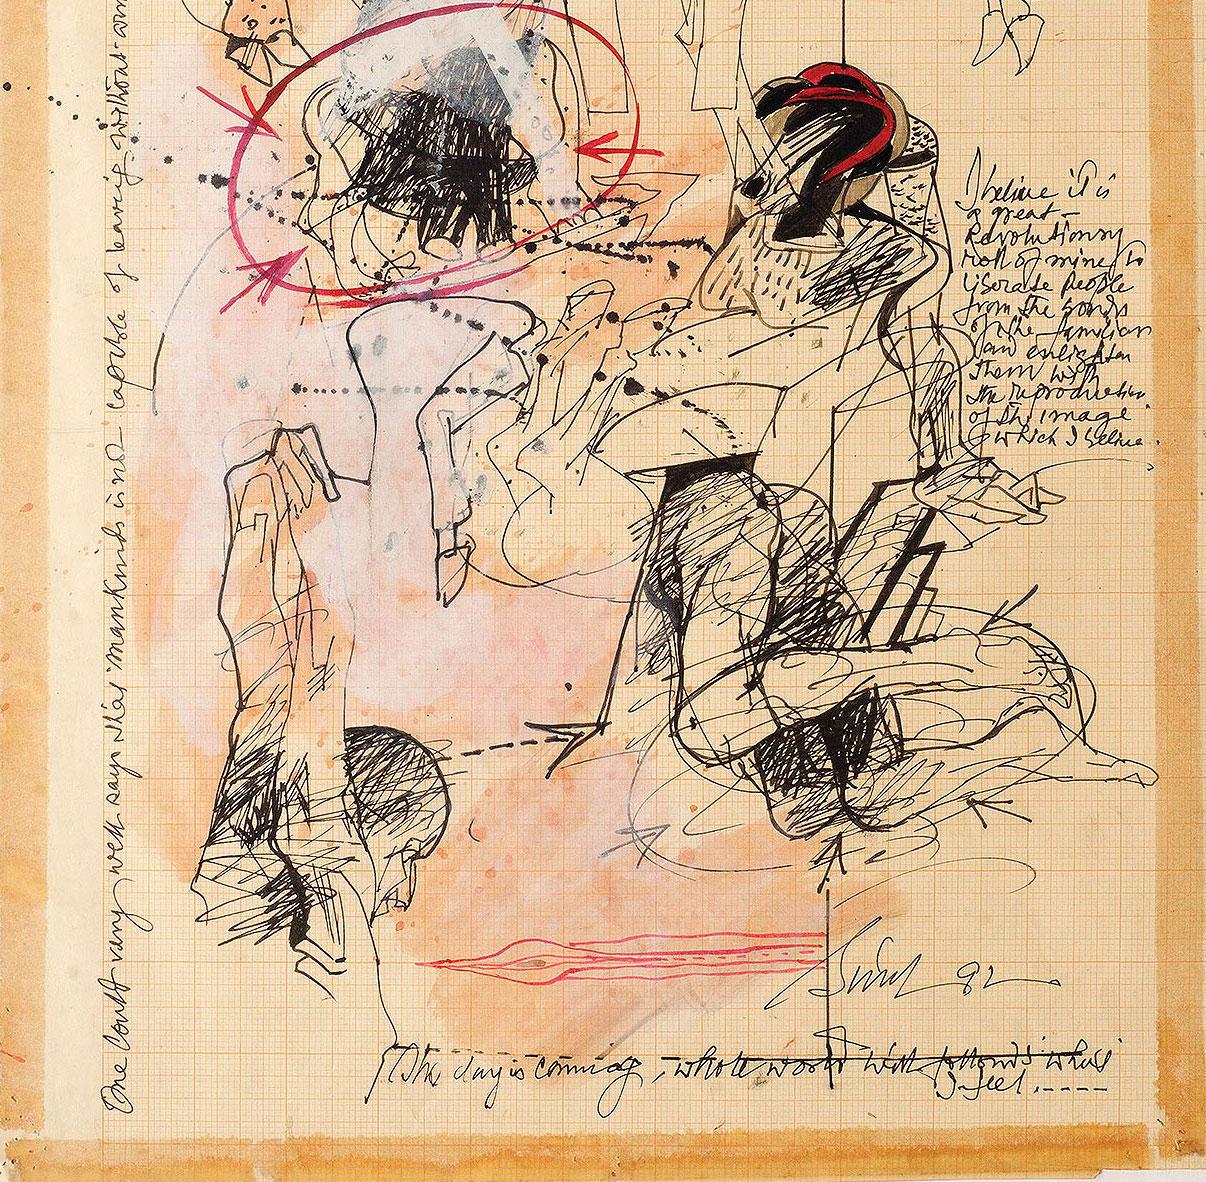 One could vary well says that mankind is not capable of leaving without arm
I believe it is
a great -
Revolutionary
roll of mine to
liberate people
from the bonds
of the familiar
and enlighten
them with
the reproduction
of the image
which I believe.
92
The day is coming, whole world will what
I feel, ----